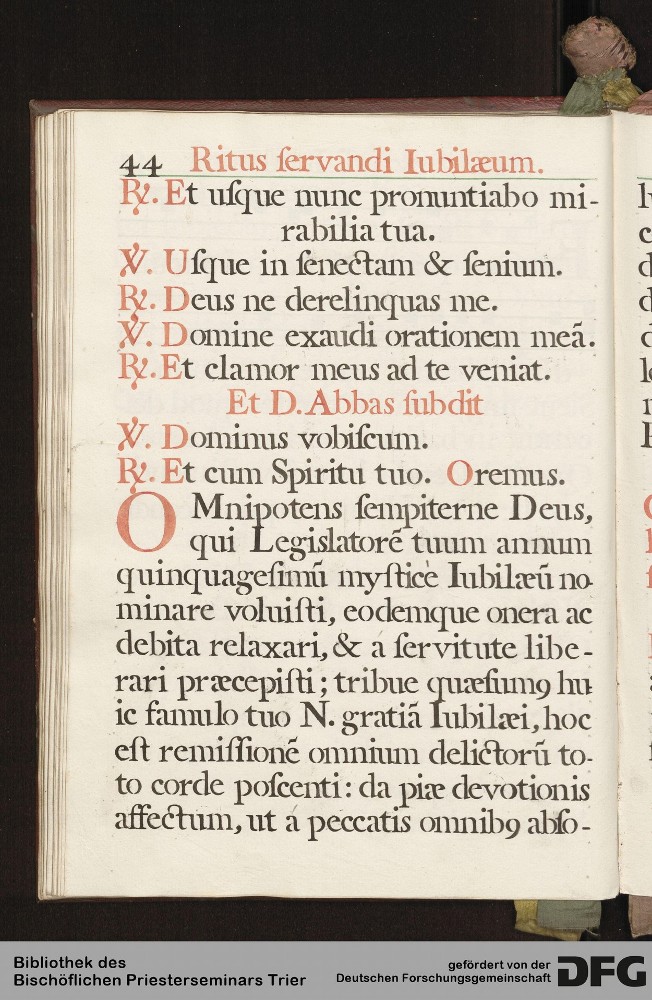 44 Ritus ſervandi Iubilæum.
℟. Et uſque nunc pronuntiabo mi-
rabilia tua.
℣. Uſque in ſenectam & ſenium.
℟. Deus ne derelinquas me.
℣. Domine exaudi orationem meã.
℟. Et clamor meus ad te veniat.
Et D. Abbas ſubdit
℣. Dominus vobiſcum.
℟. Et cum Spiritu tuo. Oremus.
OMnipotens ſempiterne Deus,
qui Legislatorẽ tuum annum
quinquageſimũ myſticè Iubilæũ no-
minare voluiſti, eodemque onera ac
debita relaxari, & a ſervitute libe-
rari præcepiſti; tribue quæſumꝰ hu-
ic famulo tuo N. gratiã Iubilæi, hoc
eſt remiſſionẽ omnium delictorũ to-
to corde poſcenti: da piæ devotionis
affectum, ut á peccatis omnibꝰ abſo-
Bibliothek des
Bischöflichen Priesterseminars Trier
gefördert von der
Deutschen Forschungsgemeinschaft
DFG